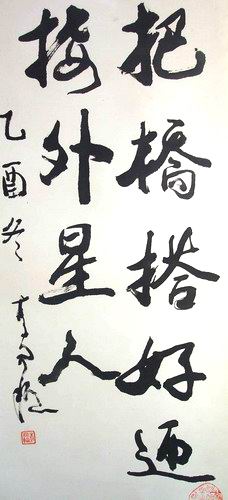 把橋搭好迎
接外星人
乙酉冬